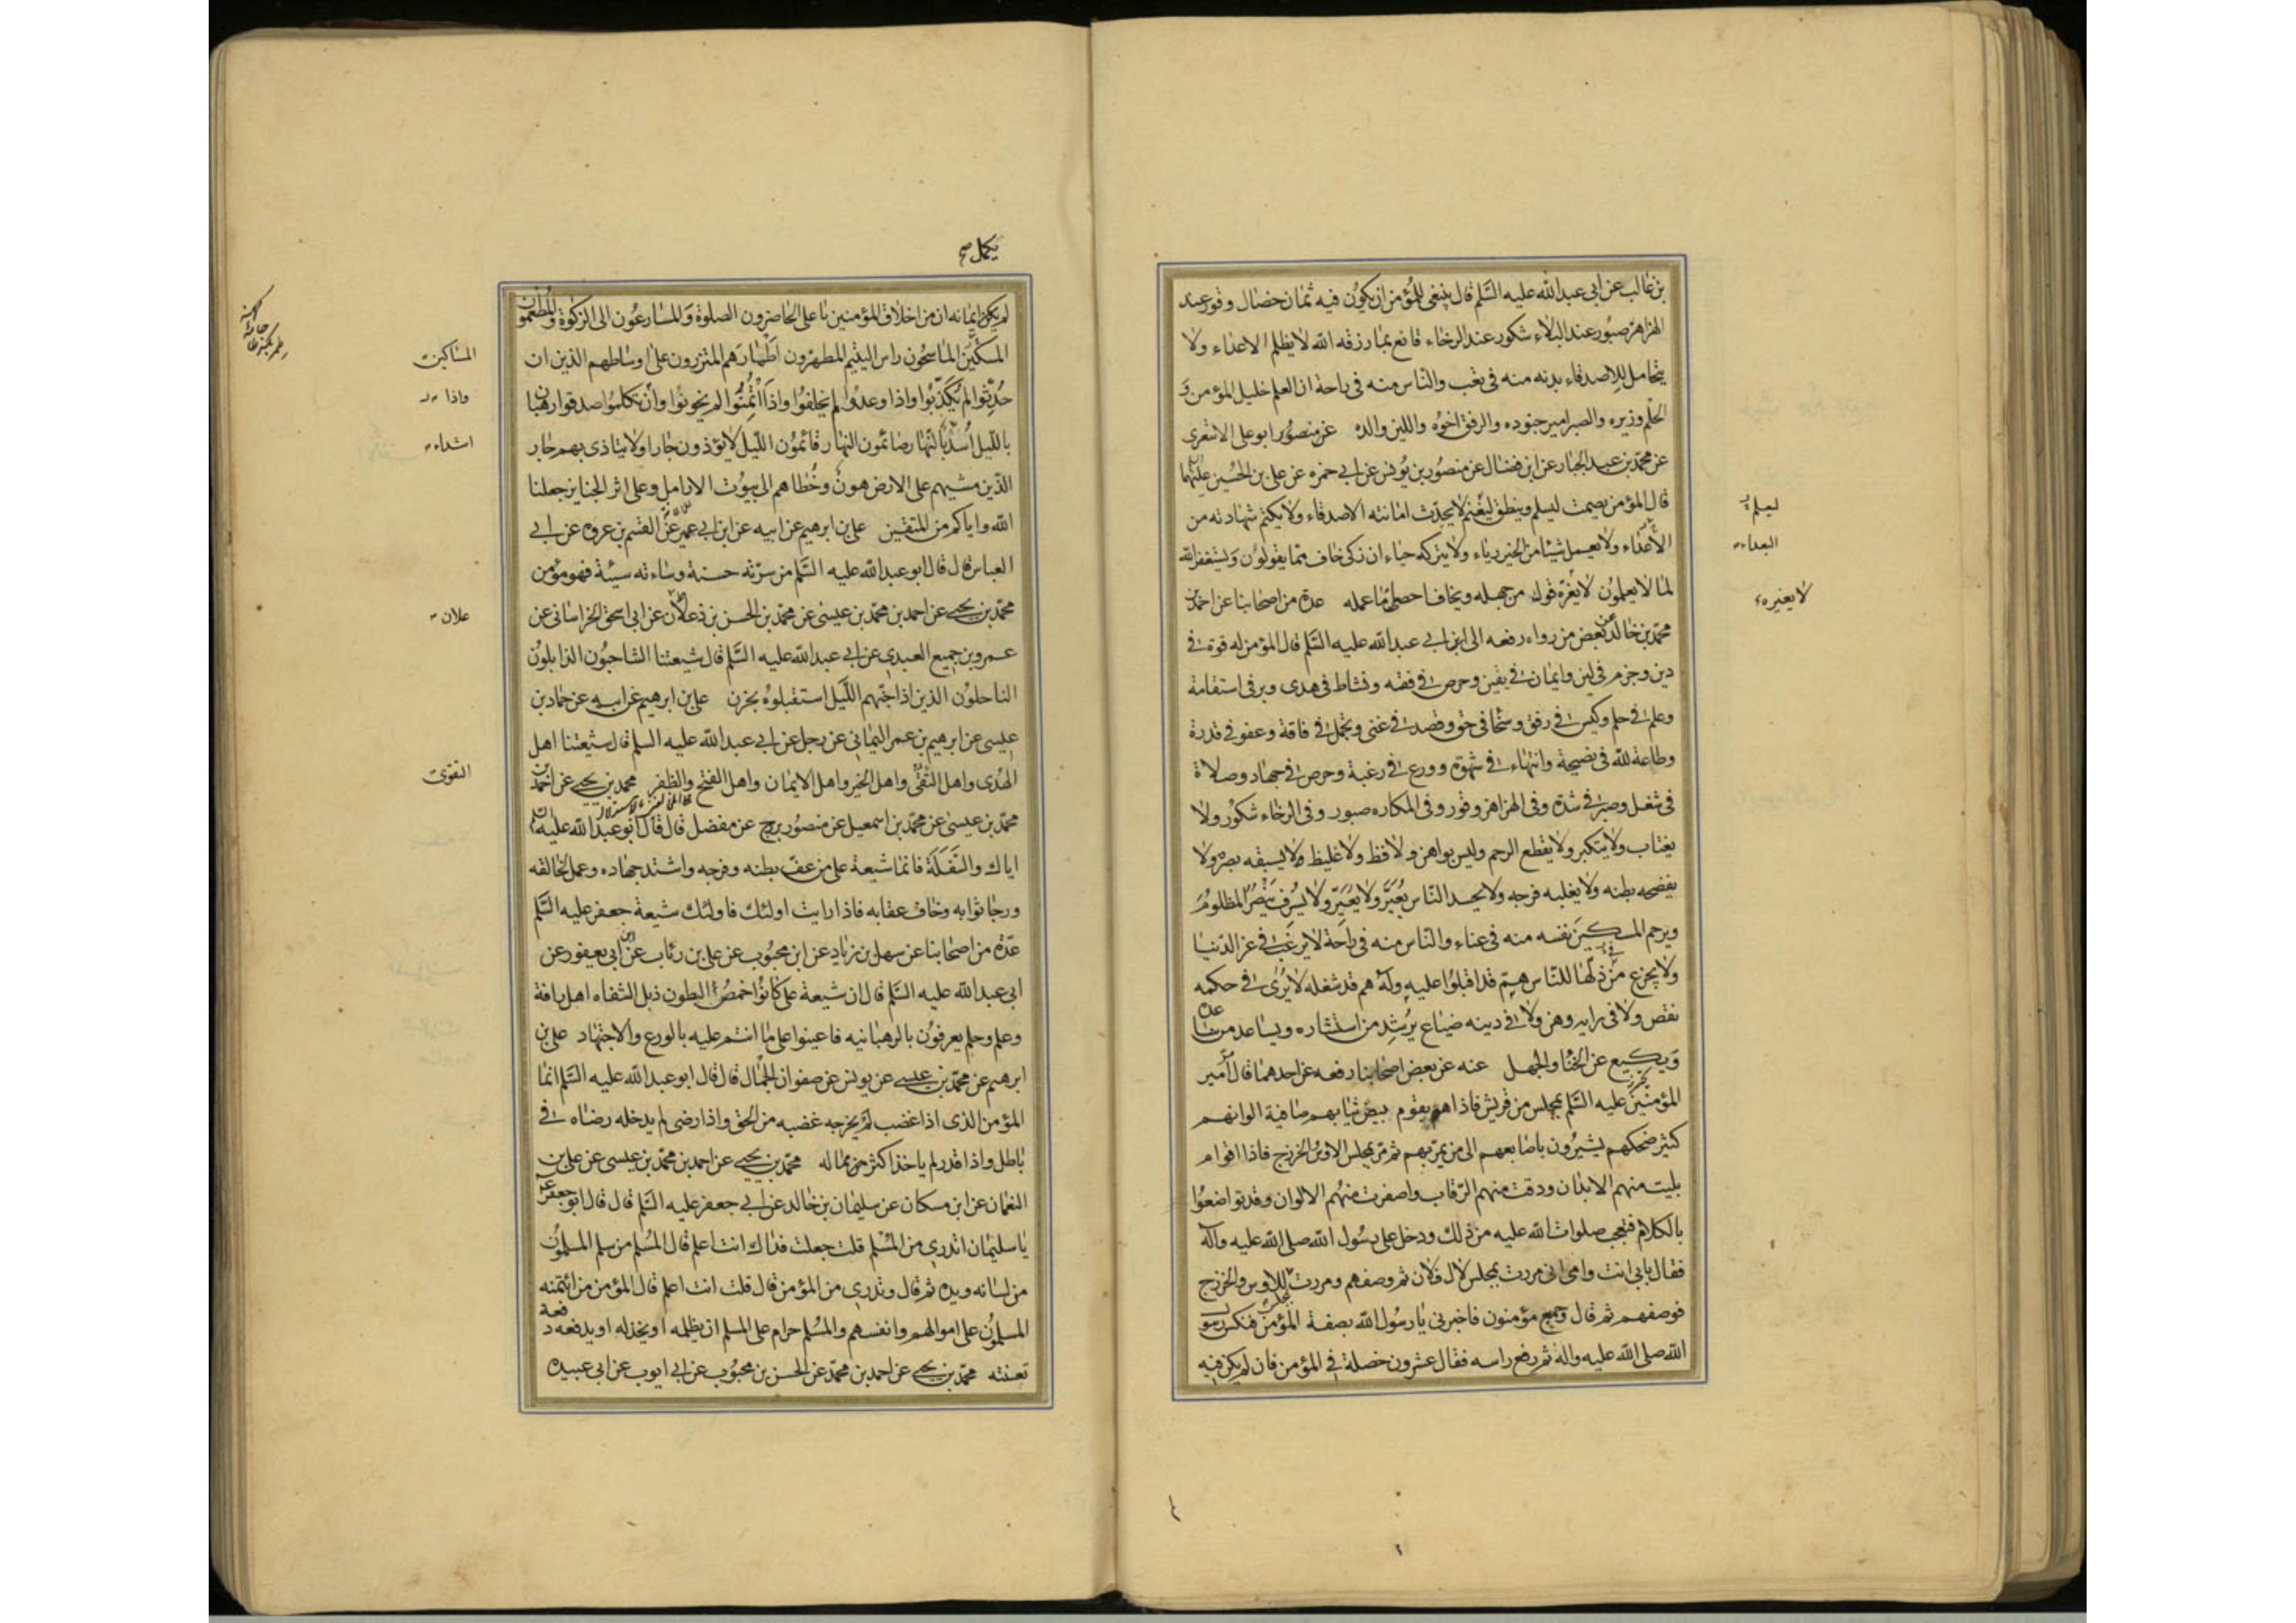 بن غالب عن ابى عبد الله عليه السّلم قال ينبغى للمؤمن ان يكون فيه ثمان خصال وقور عند
الهزاهز صبور عند البلاء شكور عند الرخاء قانع بما رزقه الله لا يظلم الاعداء ولا
يتحامل للاصدقاء بدنه منه فى تعب والناس منه فى راحة ان العلم خليل المؤمن و
الحلم وزيره والصبر امير جنوده والرفق اخوه واللين والده ابو على الاشعرى
عن محمد بن عبد الجبار عن ابن فضال عن منصور بن يونس عن ابى حمزه عن على بن الحسين عليهما
قال المؤمن يصمت ليسلم وينطق ليغنم لا يحدّث امانته الاصدقاء ولا يكتم شهادته من
الأعداء ولا يعمل شيئا من الخير رياء ولا يتركه حياء ان زكى خاف مما يقولون ويستغفر الله
لما لا يعلمون لا يغرّه قول من جهله ويخاف احصاء ما عمله عدة من اصحابنا عن احمد بن
محمد بن خالد عن بعض من رواه رفعه الى ابى عبد الله عليه السّلم قال المؤمن له قوة فى
دين وحزم فى لين وايمان فى يقين وحرص فى فقه ونشاط فى هدى وبر فى استقامة
وعلم فى حلم وكيس فى رفق وسخا فى حق وقصد فى غنى وتجمل فى فاقة وعفو فى قدرة
وطاعة لله فى نصيحة وانتهاء فى شهوة وورع فى رغبة وحرص فى جهاد وصلاة
فى شغل وصبر فى شدة وفى الهزاهز وقور وفى المكاره صبور وفى الرخاء شكور ولا
يغتاب ولا يتكبر ولا يقطع الرحم وليس بواهن ولا فظ ولا غليظ ولا يسبقه بصره ولا
يفضحه بطنه ولا يغلبه فرجه ولا يحسد الناس يُعَيَّر ولا يُعَيِّر ولا يسرف ينصر المظلوم
ويرحم المسكين نفسه منه فى عناء والناس منه فى راحة لا يرغب فى عز الدنيا
ولا يجزع من ذلّها للناس همّ قد اقبلوا عليه وله هم قد شغله لا يُرى فى حكمه
نقص ولا فى رايه وهن ولا فى دينه ضياع يرشد من استشاره ويساعد من ساعده
ويكيع عن الخنا والجهل عنه عن بعض اصحابنا رفعه عن احدهما قال مر امير
المؤمنين عليه السّلم بمجلس من قريش فاذا هو بقوم بيض ثيابهم صافية الوانهم
كثير ضحكهم يشيرون باصابعهم الى من يمر بهم ثم مرّ بمجلس الاوس والخزرج فاذا اقوام
بليت منهم الابدان ودقت منهم الرّقاب واصفرت منهم الالوان وقد تواضعوا
بالكلام فتعجب على صلوات الله عليه من ذلك ودخل على رسول الله صلى الله عليه وآله
فقال بابى انت وامى انى مررت بمجلس لال فلان ثم وصفهم ومررت بمجلس للاوس والخزرج
فوصفهم ثم قال وجميع مؤمنون فاخبرنى يا رسول الله بصفة المؤمن فنكس رسول
الله صلى الله عليه واله ثم رفع راسه فقال عشرون خصلة فى المؤمن فان لم يكن فيه
ليعلم
البعداء
لا يغيره
يكمل صح
لم يكمل ايمانه ان من اخلاق المؤمنين يا على الحاضرون الصلوة والمسارعون الى الزكوة والمطعمون
المسكين الماسحون راس اليتيم المطهرون اطمارهم المتزرون على اوساطهم الذين ان
حُدّثوا لم يكذبوا واذا وعدوا لم يخلفوا واذا اأتُمِنُوا لم يخونوا وأن تكلموا صدقوا رهبان
بالليل اُسد بالنهار صائمون النهار قائمون الليل لا يؤذون جارا ولا يتاذى بهم جار
الذين مشيهم على الارض هون وخُطاهم الى بيوت الارامل وعلى اثر الجنايز جعلنا
الله واياكم من المتقين على بن ابرهيم عن ابيه عن ابن ابى عمير عن القسم بن عروه عن ابى
العباس قال قال ابو عبد الله عليه السّلم من سرّته حسنة وساءته سيئة فهو مؤمن
محمد بن يحيى عن احمد بن محمد بن عيسى عن محمد بن الحسن بن زعلان عن ابى اسحق الخراسانى عن
عمرو بن جميع العبدى عن ابى عبد الله عليه السّلم قال شيعتنا الشاحبون الذابلون
الناحلون الذين اذا جنهم الليل استقبلوه بحزن على بن ابرهيم عن ابيه عن حماد بن
عيسى عن ابرهيم بن عمر اليمانى عن رجل عن ابى عبد الله عليه السلم قال شيعتنا اهل
الهُدى واهل التقى واهل الخير واهل الايمان واهل الفتح والظفر محمد بن يحيى عن احمد بن
محمد بن عيسى عن محمد بن اسمعيل عن منصور بزرج عن مفضل قال قال ابو عبد الله عليه السلم
اياك والسفلة فانما شيعة على من عفّ بطنه وفرجه واشتد جهاده وعمل لخالقه
ورجا ثوابه وخاف عقابه فاذا رايت اولئك فاولئك شيعة جعفر عليه السّلم
عدة من اصحابنا عن سهل بن زياد عن ابن محبوب عن على بن رئاب عن ابن ابى يعفور عن
ابى عبد الله عليه السّلم قال ان شيعة على كانوا خمص البطون ذبل الشفاه اهل رافة
وعلم وحلم يعرفون بالرهبانيه فاعينوا على ما انتم عليه بالورع والاجتهاد على بن
ابرهيم عن محمد بن عيسى عن يونس عن صفوان الجمال قال قال ابو عبد الله عليه السّلم انما
المؤمن الذى اذا غضب لم يخرجه غضبه من الحق واذا رضى لم يدخله رضاه فى
باطل واذا قدر لم ياخذ اكثر من ماله محمد بن يحيى عن احمد بن محمد بن عيسى عن على بن
النعمان عن ابن مسكان عن سليمان بن خالد عن ابى جعفر عليه السّلم قال قال ابو جعفر ع
يا سليمان اتدرى من المُسْلم قلت جعلت فداك انت اعلم قال المُسلم من سلم المسلمون
من لسانه ويده ثم قال وتدرى من المؤمن قال قلت انت اعلم قال المؤمن من ائتمنه
المسلمون على اموالهم وانفسهم والمُسلم حرام على المسلم ان يظلمه او يخذله او يدفعه دفعة
تعنته محمد بن يحيى عن احمد بن محمد عن الحسن بن محبوب عن ابى ايوب عن ابى عبيده
المساكين
واذا
اشداء
علان
التقوى